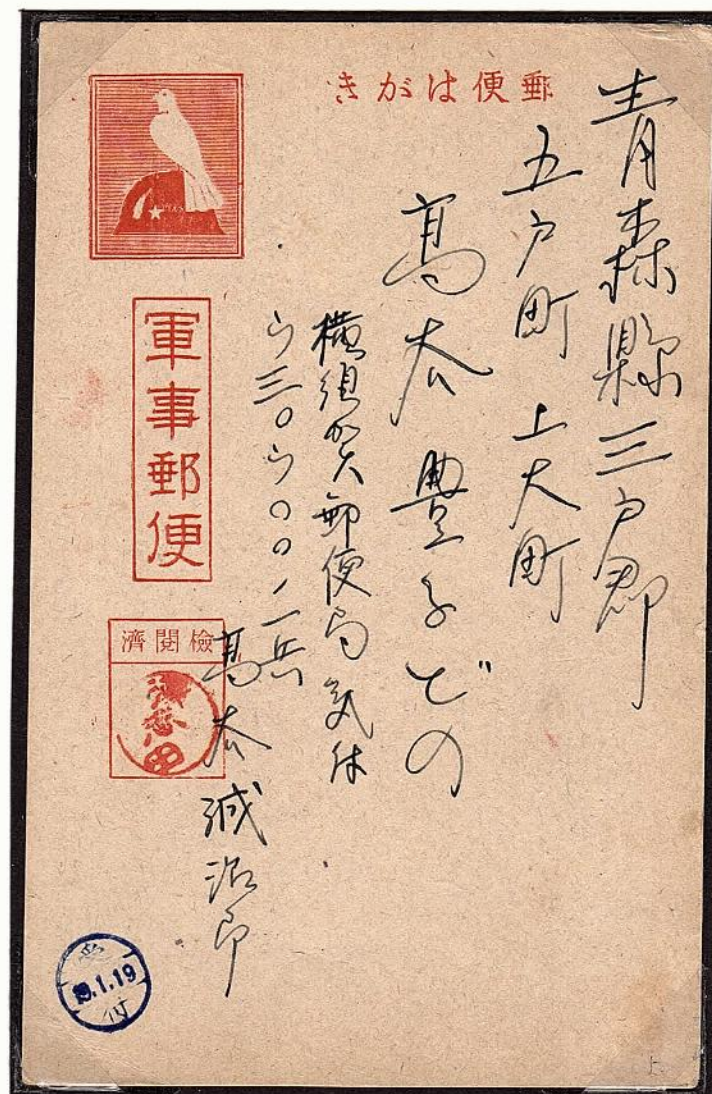 郵便はがき
青森縣三戸郡
五戸町 上大町
髙木 豊子どの
横須賀郵便局気付
ウ三〇ウ〇〇ノ二兵
髙木誠治郎
軍事郵便
檢閲濟
受付
.1.19